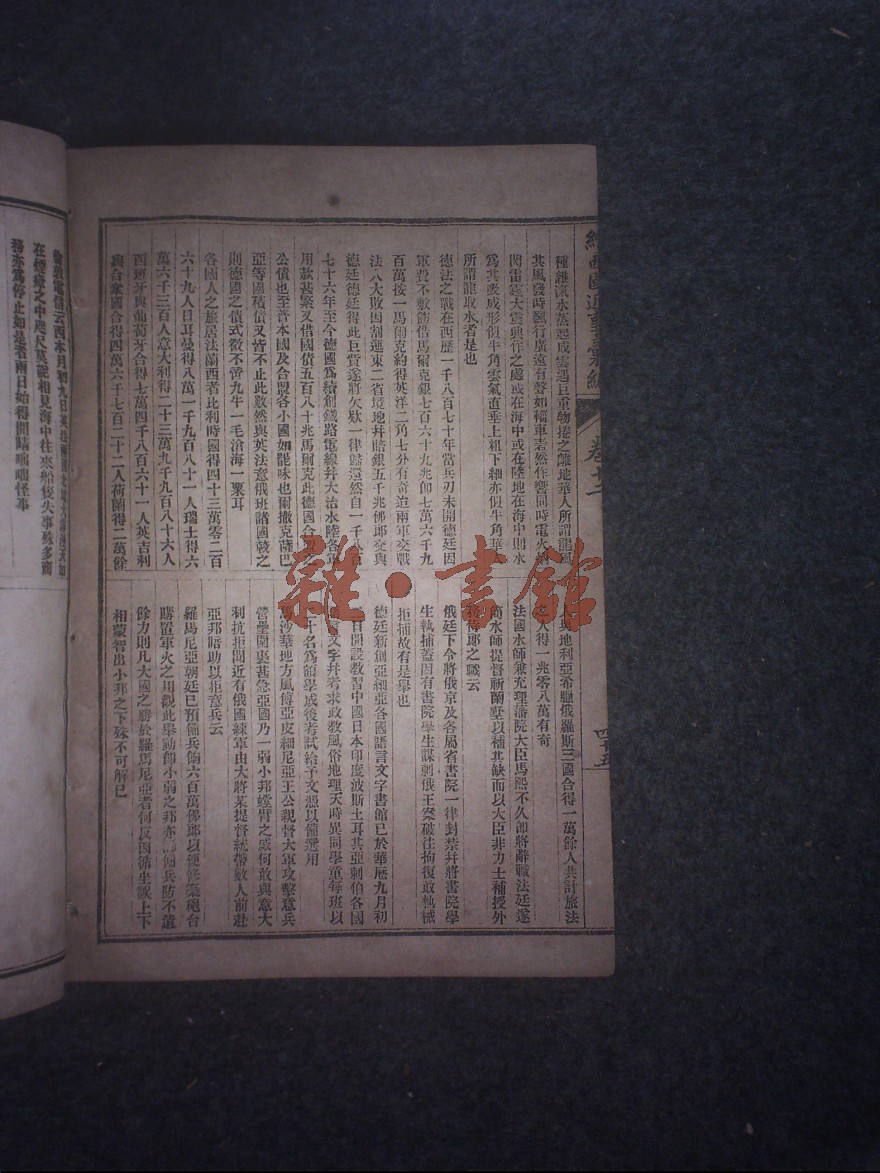 卷十二
種經流水蒸起成雲遇巨重物捲之離地華人所謂龍風
其風發時驟行廣遠有聲如輜車轟然作響同時電火
閃雷霆大震興作之處或在海中或在陸地在海中則水
為其吸成形似牛角雲氣直垂上粗下細亦似牛角華
所謂龍取水者是也
德法之戰在西歷一千八百七十年當兵刃未開德廷因
軍費不敷飭借馬爾克銀七百六十九兆卽七萬六千九
百萬按一馬爾克約得英洋二角七分有奇迨兩軍交戰
法人大敗因割連東二省境地幷賠銀五千兆佛郎交與
德廷德廷得此巨貲遂將欠欵一律歸還然自一千八百
七十六年至今德國爲續創鐵路電線幷大治水陸各軍
用款甚繁又借國債五百八十兆馬爾克此德國合盟之
公債也至普本國及合盟各小國如毗味也爾撒克薩巴
亞等國積債又皆不止此數然與英法意俄班諸國較之
則德國之債式微不啻九牛一毛滄海一粟耳
各國人之旅居法蘭西者比利時國得四十三萬零二百
六十九人日耳曼得八萬一千九百八十一人瑞士得六
萬六千三百人意大利得二十三萬九千九百八十六人
西班牙與葡萄牙合得七萬四千八百六十一人英吉利
與合衆國合得四萬六千七百二十二人荷蘭得二萬餘
人與地利亞希臘俄羅斯三國合得一萬餘人共計旅法
之人得一兆零八萬有奇
法國水師兼充理藩院大臣馬熙不久卽將辭職法廷遂
簡水師提督斬蘭墅以補其缺而以大臣非力士補授外
務侍郎之職云
俄廷下令將俄京及各屬省書院一律封禁幷將書院學
生執捕蓋因有書院學生謀刺俄王案破往拘復敢執械
拒捕故有是舉也
德廷新創亞細亞各國語言文字書館已於華歷九月初
日開設教習中國日本印度波斯土耳其亞剌伯各國
言文字幷考求政教風俗地理天時異同學童每班以
十名爲額學成後考試給予文憑以備選用
馬沙華地方風傳亞皮細尼亞王公親督大軍攻擊意兵
營壘圍裹甚急亞國乃一弱小邦螳臂之威何敢與意大
利抗拒聞近有俄國練軍由大將某提督統帶數人前赴
亞邦賠助以拒意兵云
羅馬尼亞朝廷已預備兵餉六百萬佛郎以便修築砲台
購置軍火之用觀此舉動卽小弱之邦亦
備兵防不遺
餘力則凡大國之勝於羅馬尼亞者何反因循坐誤上下
相蒙智出小邦之下殊不可解已
在煙霧之中咫尺莫能相見海中往來船隻失事殊多商
務亦爲停止如是者兩日始得開晴咄咄怪事
雜·書館